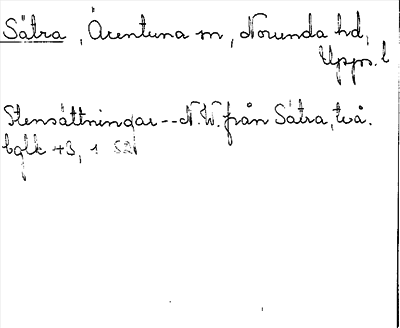 Sätra, Ärentuna sn, Norunda hd,
Upps. l
Stensättningar -- N.W. från Sätra, två.
bglk +3, 1 52